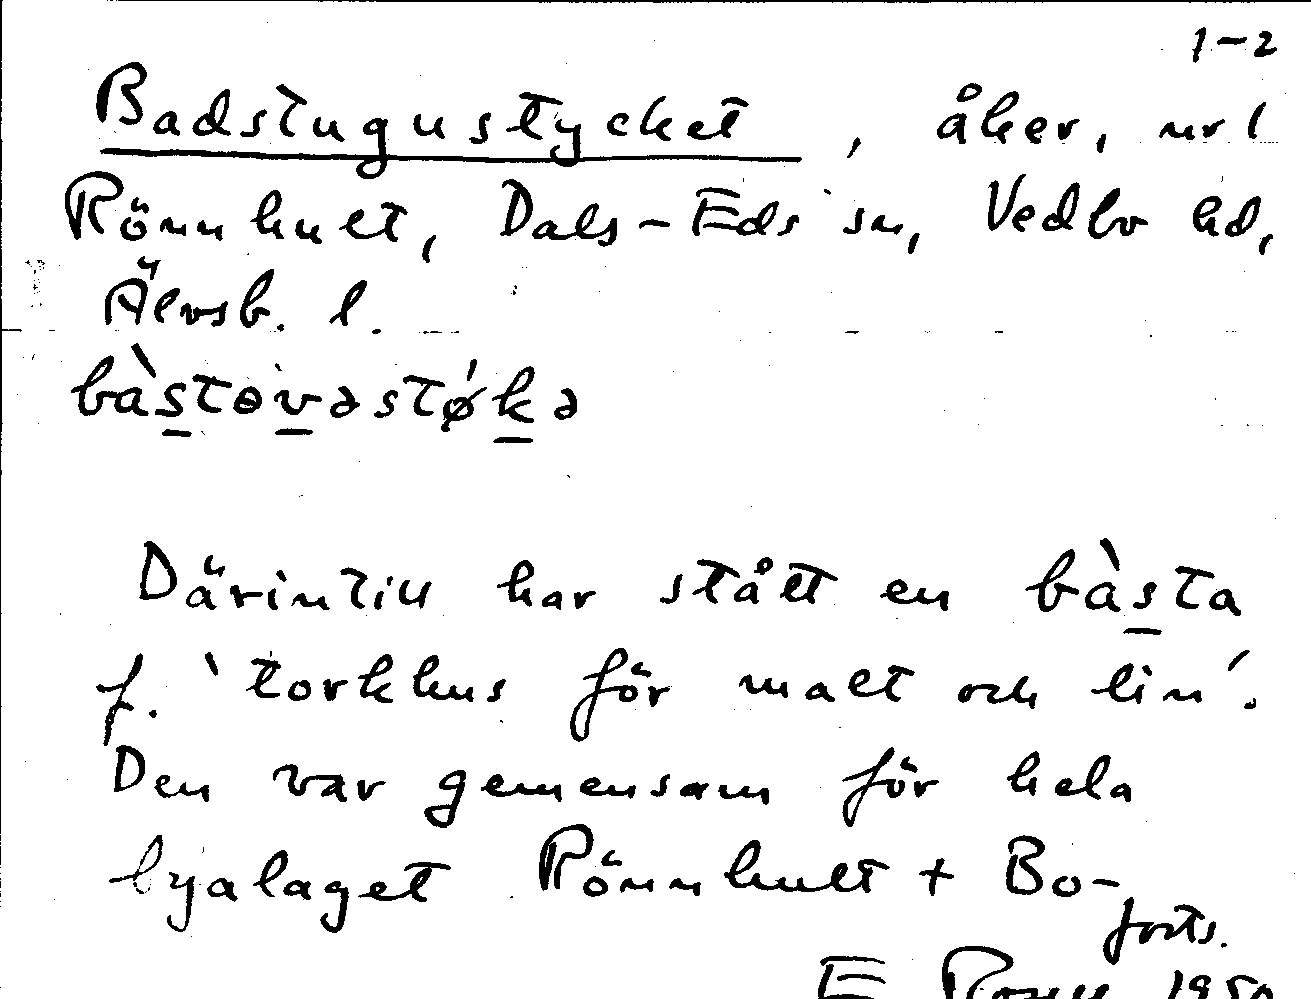 1-2
Badstugustycket, åker, url
Rönnhult, Dals-Eds sn, Vedbo hd,
Älvsb. l.
bàstɵvəstǿkə
Därintill har stått en bàsta
f. 'torkhus för malt och lin'.
Den var gemensam för hela
byalaget Rönnhult + Bo-
forts.
E